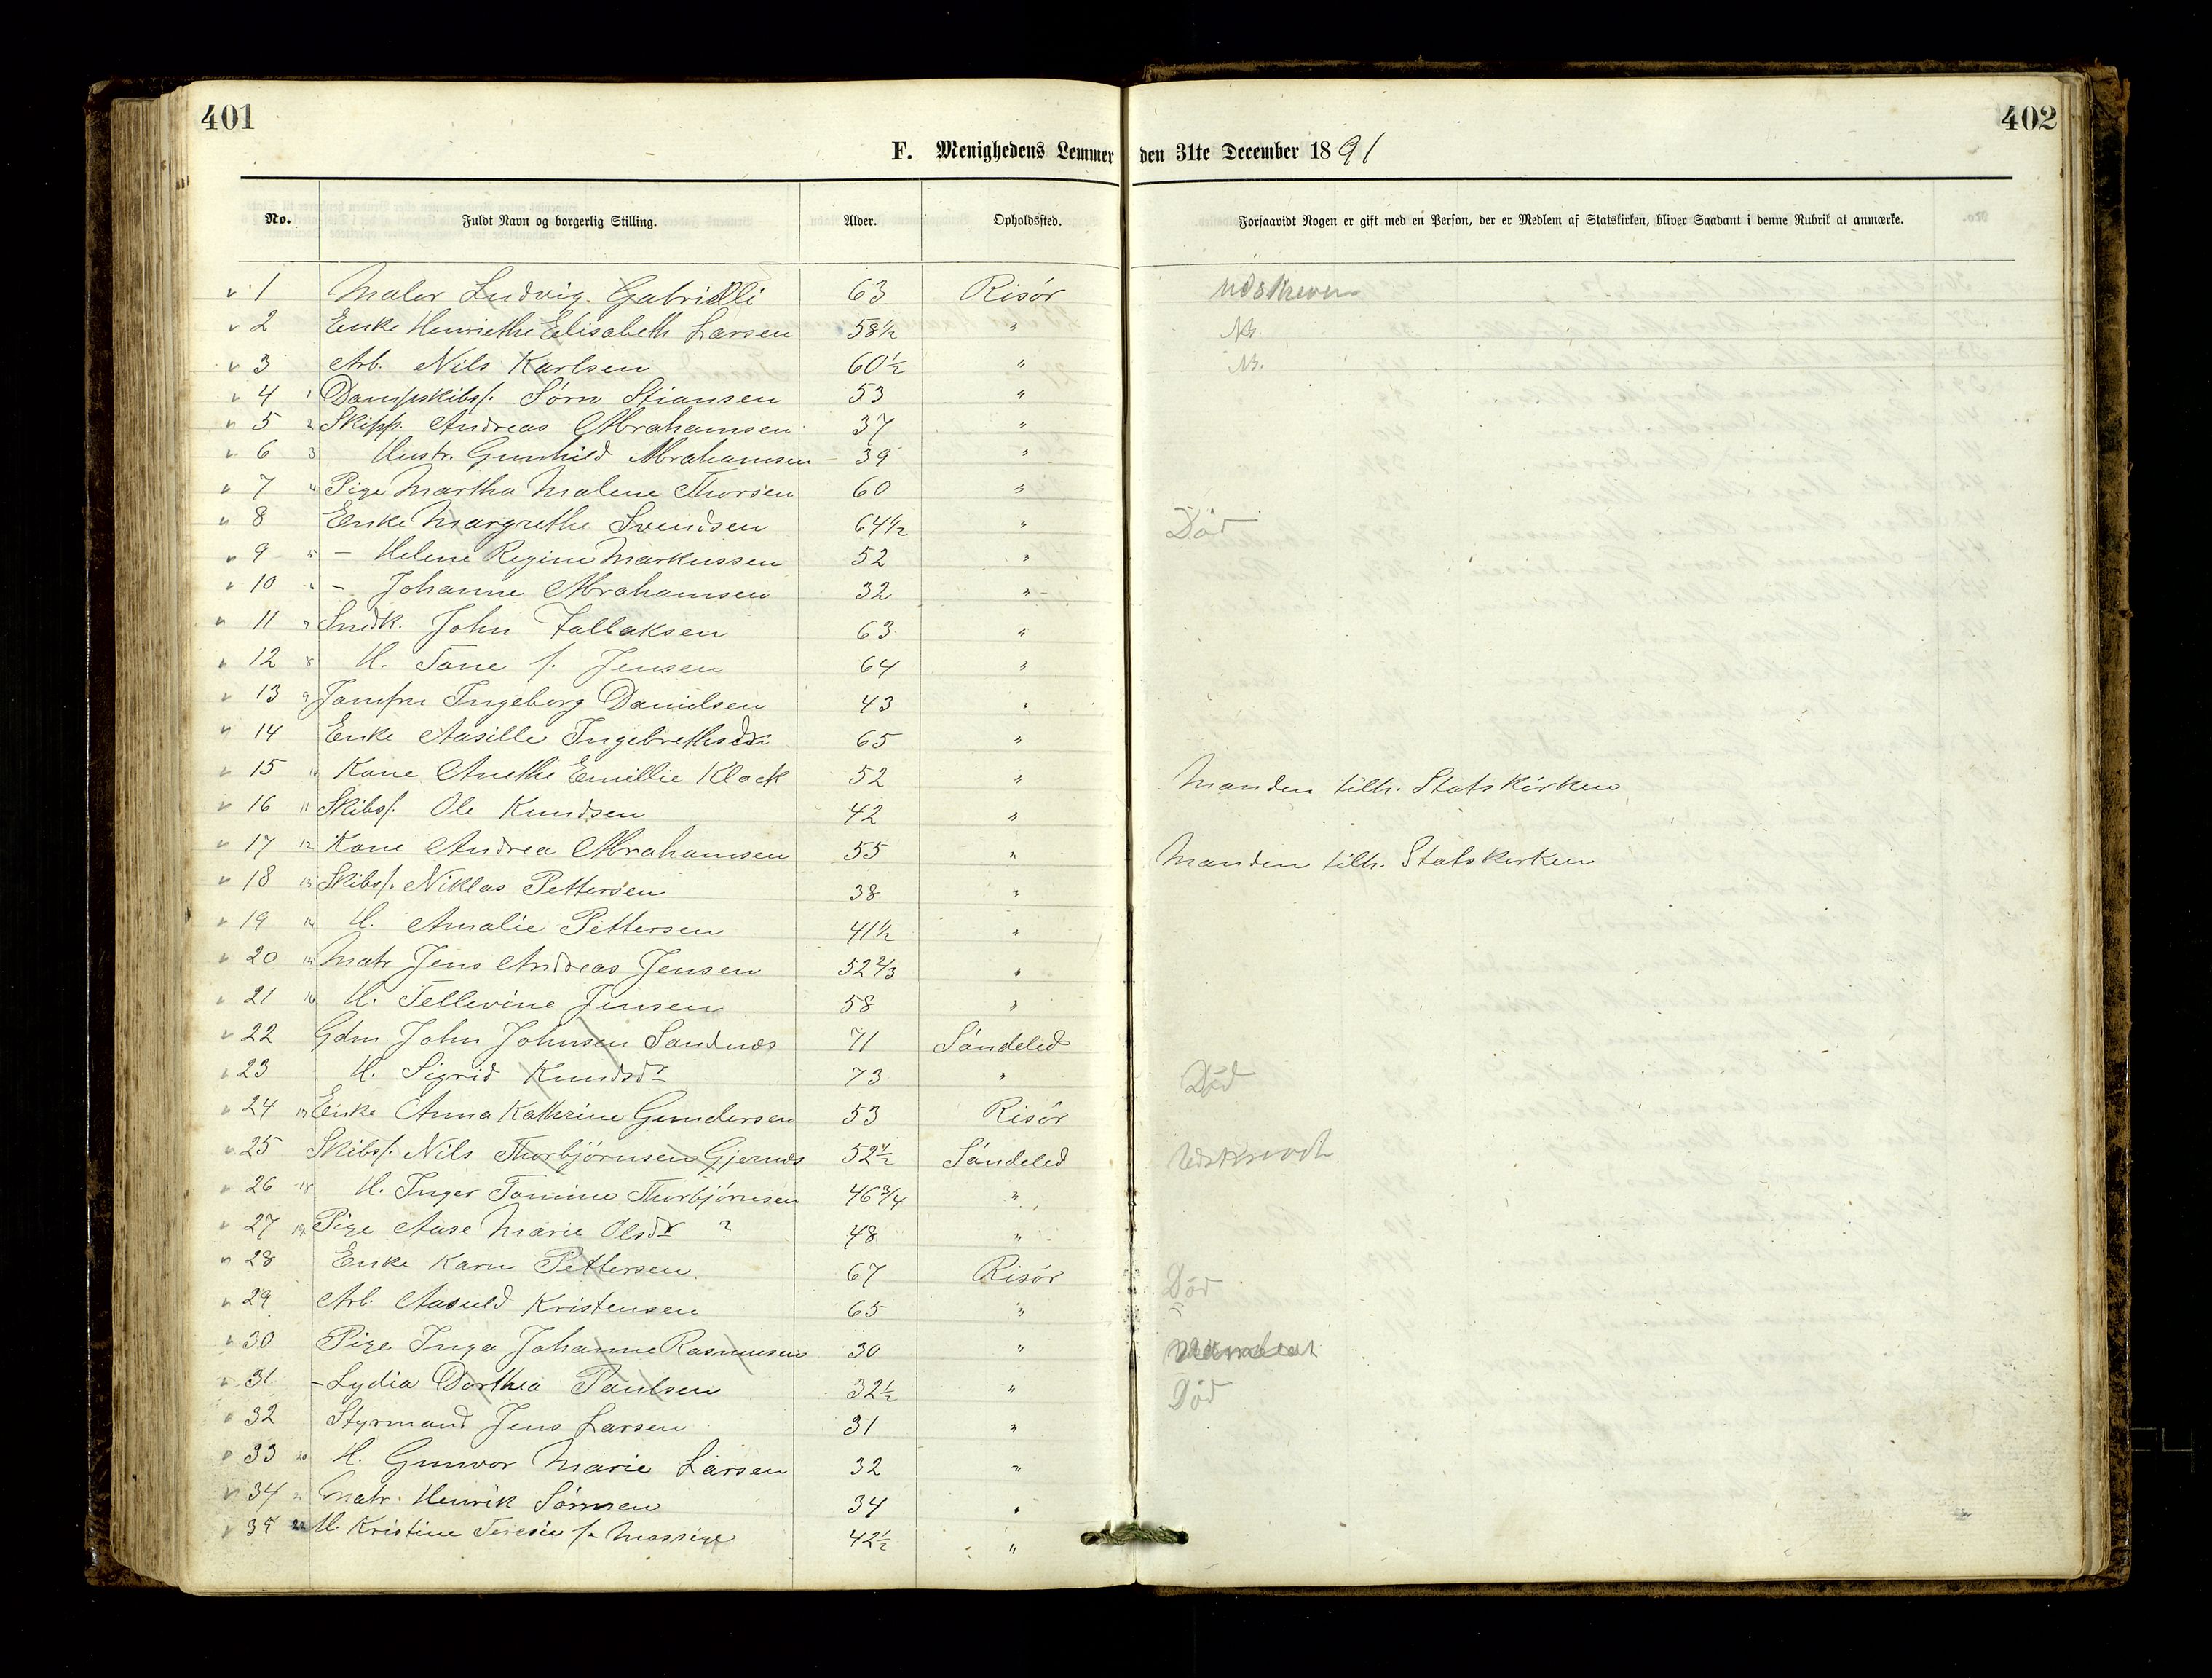 401
402
F. Menighedens Lemmer den 31te December 1891
No. Fuldt Navn og borgerlig Stilling. Alder. Opholdssted. Forsaavidt Nogen er gift med en Person, der er Medlem af Statskirken, bliver Saadant i denne Rubrik at anmærke.
1 Maler Ludvig Gabrielli 63 Risör Udskreven
2 Enke Henriethe Elisabeth Larsen 58½ "
3 Arb. Nils Karlsen 60½ "
4 1 Dampskibsf. Sörn Stiansen 53 "
5 2 Skipp. Andreas Abrahamsen 37 "
6 3 Hustr. Gunhild Abrahamsen 39 "
7 4 Pige Martha Malene Thorsen 60 "
8 Enke Margrethe Svendsen 64½ " Död
9 5 - Helene Regine Markussen 52 "
10 6 - Johanne Abrahamsen 32 "
11 7 Snedk. John Tallaksen 63 "
12 8 H. Tone f. Jensen 64 "
13 9 Jomfru Ingeborg Danielsen 43 "
14 Enke Aasille Ingebrethsdr 65 "
15 10 Kone Anethe Emillie Klock 52 " Manden tilh. Statskirken
16 11 Skibsf. Ole Knudsen 42 "
17 12 Kone Andrea Abrahamsen 55 " Manden tilh. Statskirken
18 13 Skibsf. Niklas Pettersen 38 "
19 14 H. Amalie Pettersen 41½ "
20 15 Matr Jens Andreas Jensen 52⅔ "
21 16 H. Tellevine Jensen 58 "
22 Gdm John Johnsen Sandnæs 71 Söndeled
23 H. Sigrid Knudsdr 73 " Död
24 17 Enke Anna Kathrine Gundersen 53 Risör
25 Skibsf. Nils Thorbjörnsen Gjernæs 52½ Söndeled Udskrevdt
26 18 H. Inger Tomine Thorbjörnsen 46¾ "
27 19 Pige Aase Marie Olsdr ? 48 "
28 Enke Karn Pettersen 67 Risör Död
29 Arb. Aasuld Kristensen 65 "
30 Pige Inga Johanne Rasmusen 30 "
31 - Lydia Dorthea Paulsen 32½ " Död
32 Styrmand Jens Larsen 31 "
33 20 H. Gunvor Marie Larsen 32 "
34 21 Matr. Henrik Sörnsen 34 "
35 22 H. Kristine Teresie f. Mossige 42½ "